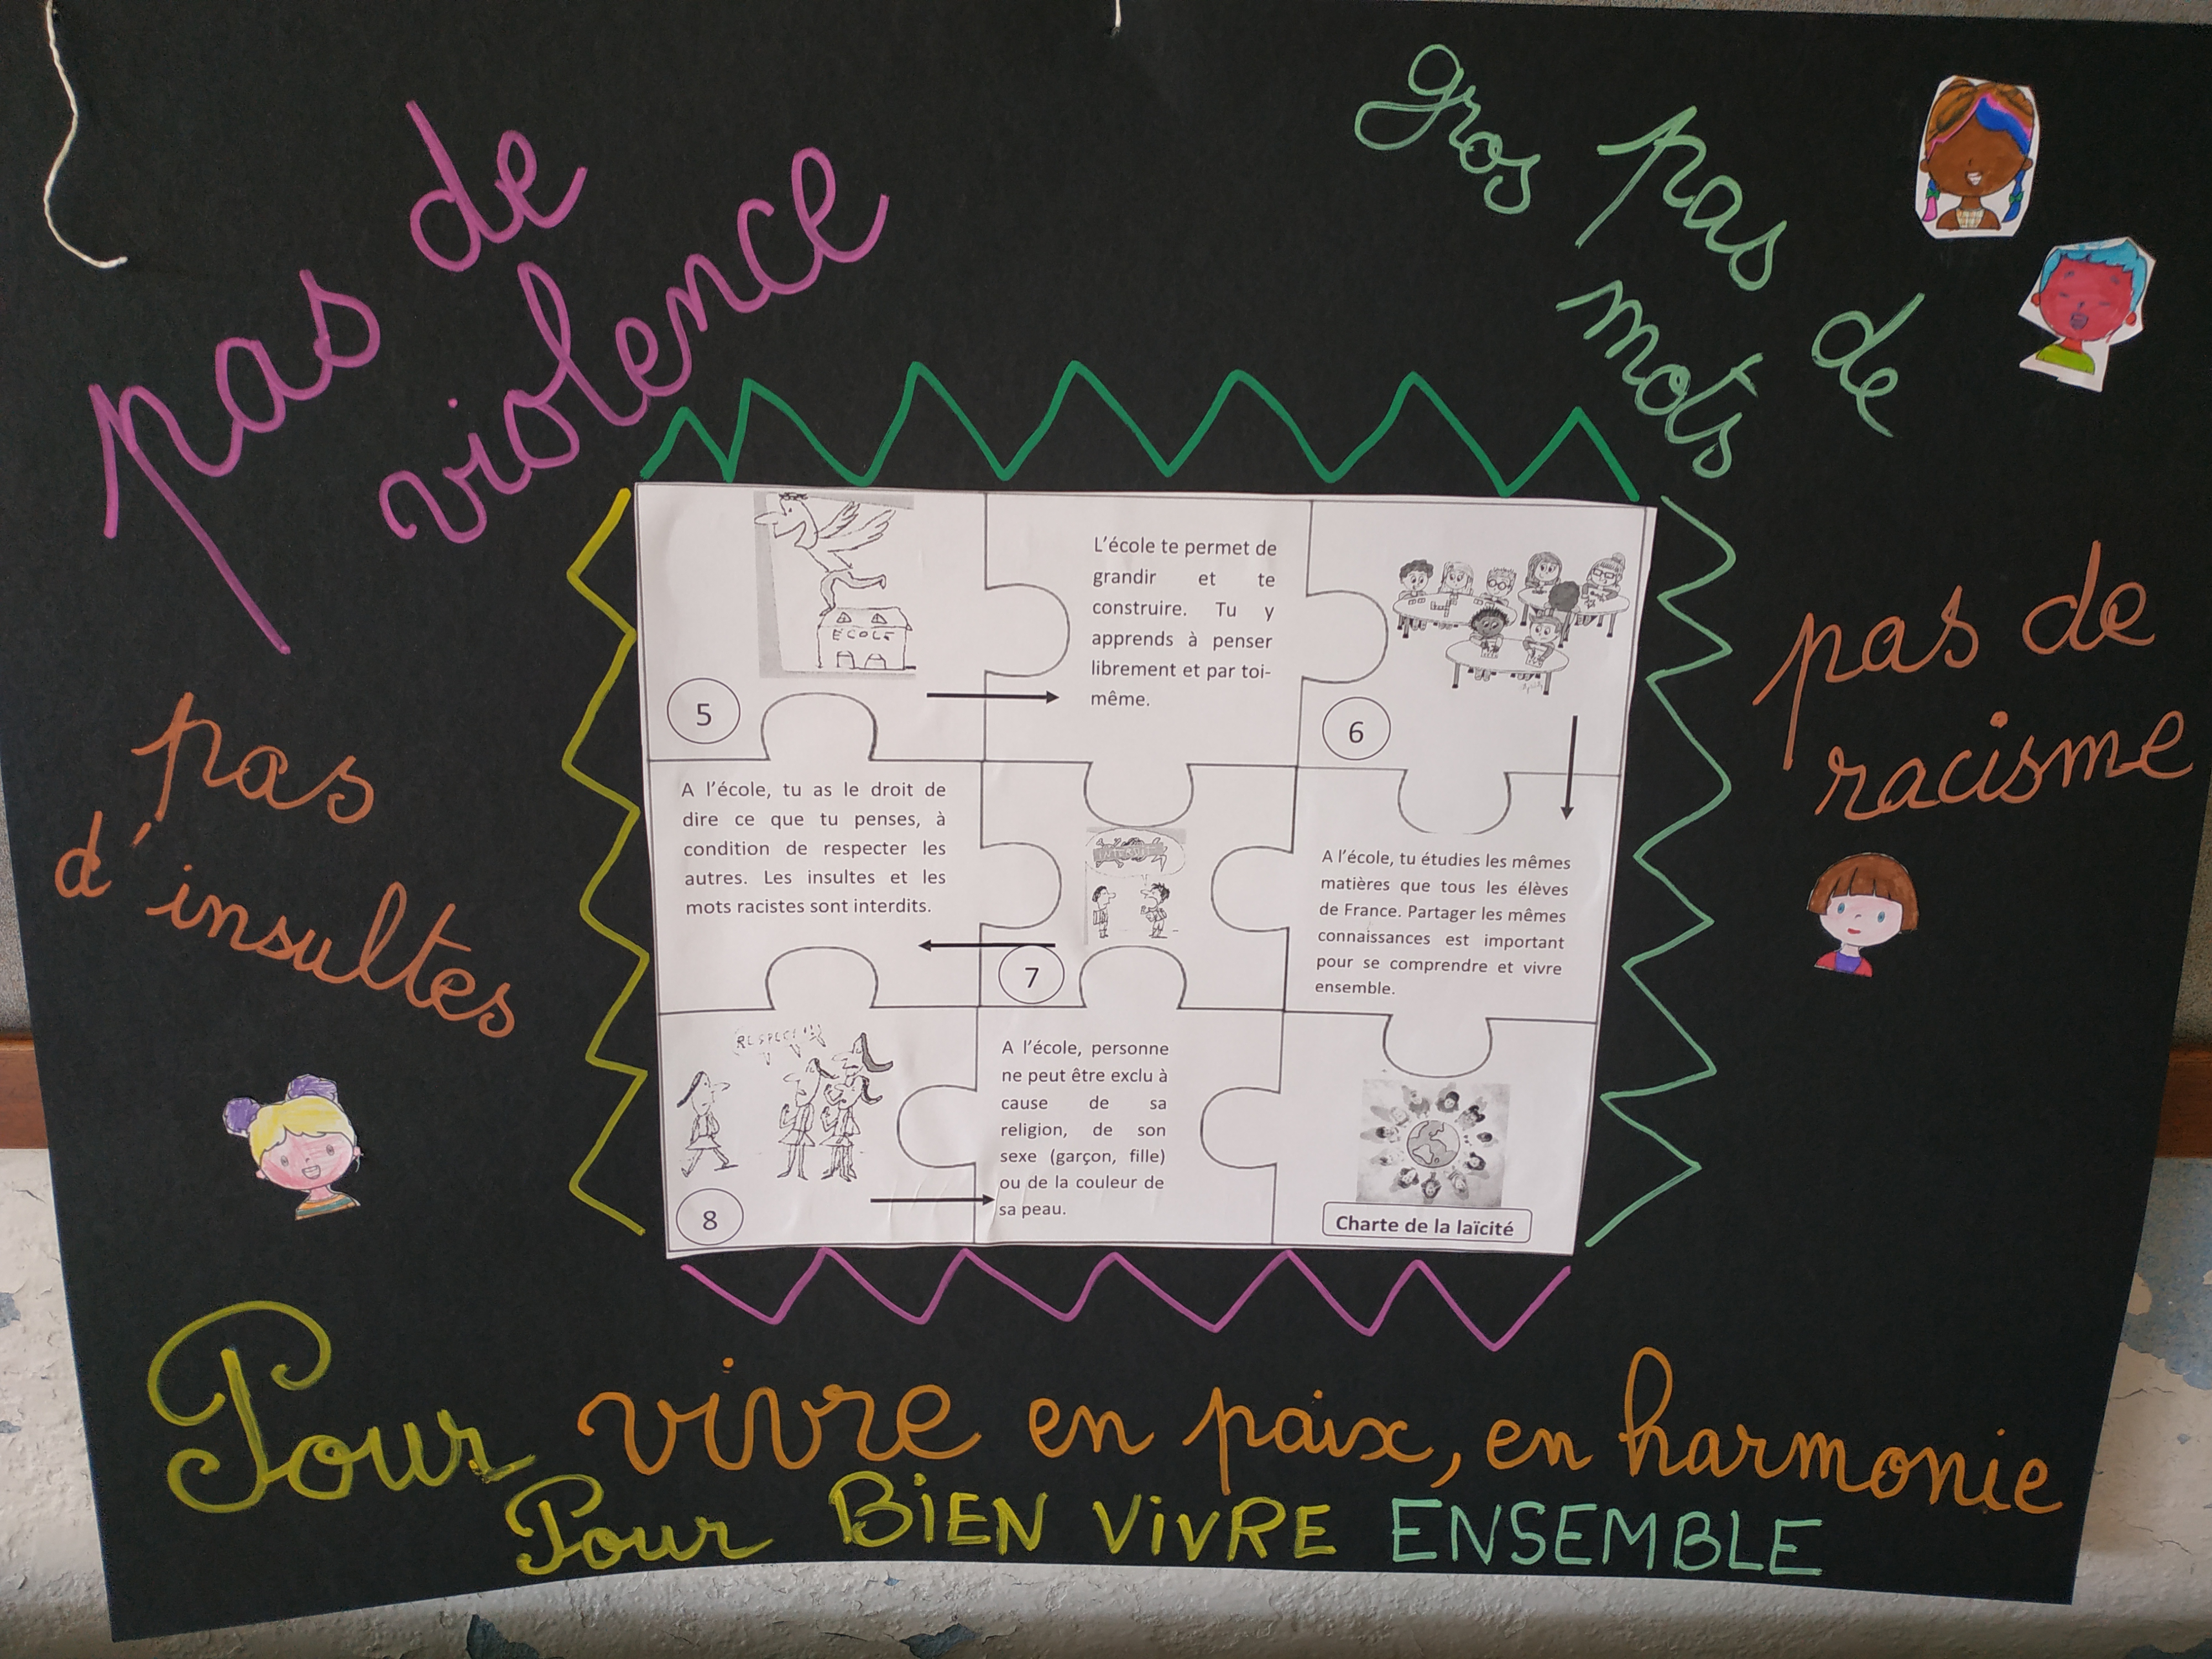 pas de
violence
gros
pas de
mots
pas de
racisme
pas
d'insultes
ÉCOLE
5
L'école te permet de
grandir et te
construire. Tu y
apprends à penser
librement et par toi-
même.
6
A l'école, tu as le droit de
dire ce que tu penses, à
condition de respecter les
autres. Les insultes et les
mots racistes sont interdits.
7
A l'école, tu étudies les mêmes
matières que tous les élèves
de France. Partager les mêmes
connaissances est important
pour se comprendre et vivre
ensemble.
8
A l'école, personne
ne peut être exclu à
cause de sa
religion, de son
sexe (garçon, fille)
ou de la couleur de
sa peau.
Charte de la laïcité
Pour vivre en paix, en harmonie
Pour BiEN ViVRE ENSEMBLE